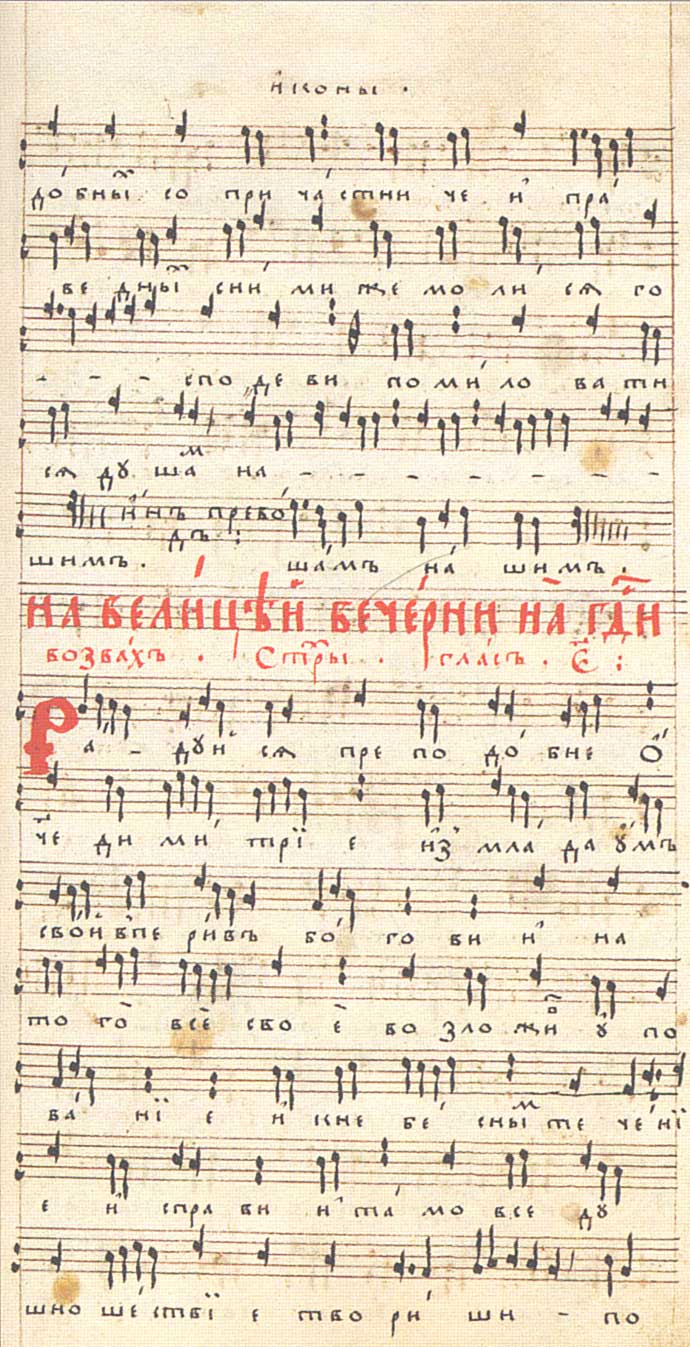 и҆коны .
до́ бны̑ со при ча́ стни че и҆ пра́
ве дны̑ сни́ ми же мо ли́ ся го
- - - спо де ви по ми́ ло ва ти
ся ду ша м на - - - - - -
и҆́нъ прево́
дъ :
шимъ . ша́мъ на́ шимъ .
НА ВЕЛИ́ЦѢЙ ВЕЧЕ́РНИ НА̑ ГДⷭ҇И
возва́хъ . Стⷯры . гла́съ . Є҃ :
Ра - дуи́ ся пре по до́ бне Ѻ҆́
че ди ми́ трї е и҆з̾ мла́ да ᲂу҆́мъ
сво́й впе ри́въ бо́ го ви и҆ на
то го̑ все̑ сво е̑ во зло жи́ ᲂу҆ по
ва́ нї е и҆ кне бе́ сны м те че́ нї
е и҆ спра ви и҆ та́ мо все ду
шно ше́ ствї е тво ри́ ши - по